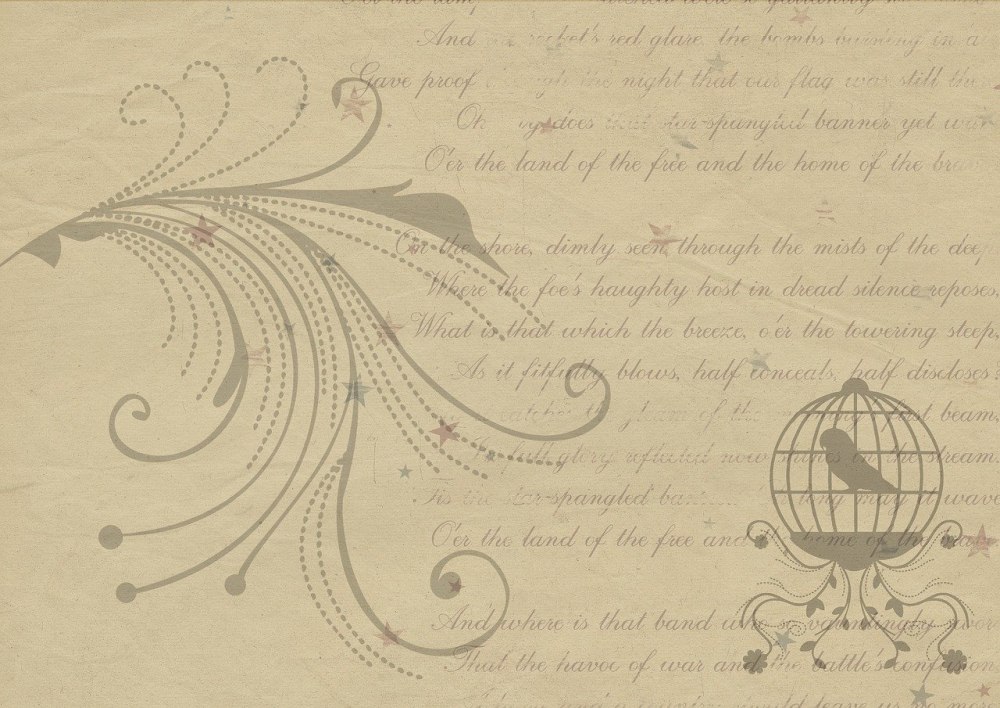 And rocket's red glare, the bombs bursting in a
Gave proof through the night that our flag was still the
Oh does that star-spangled banner yet wa
O'er the land of the free and the home of the bra
On the shore, dimly seen through the mists of the deep
Where the foe's haughty host in dread silence reposes,
What is that which the breeze, o'er the towering steep,
As it fitfully blows, half conceals, half discloses?
catches the gleam of the first beam,
In full glory reflected now shines in the stream:
'Tis the star-spangled ba long may it wave
O'er the land of the free and the home of the
And where is that band who so vauntingly swore
That the havoc of war and the battle's confusion
leave us no more